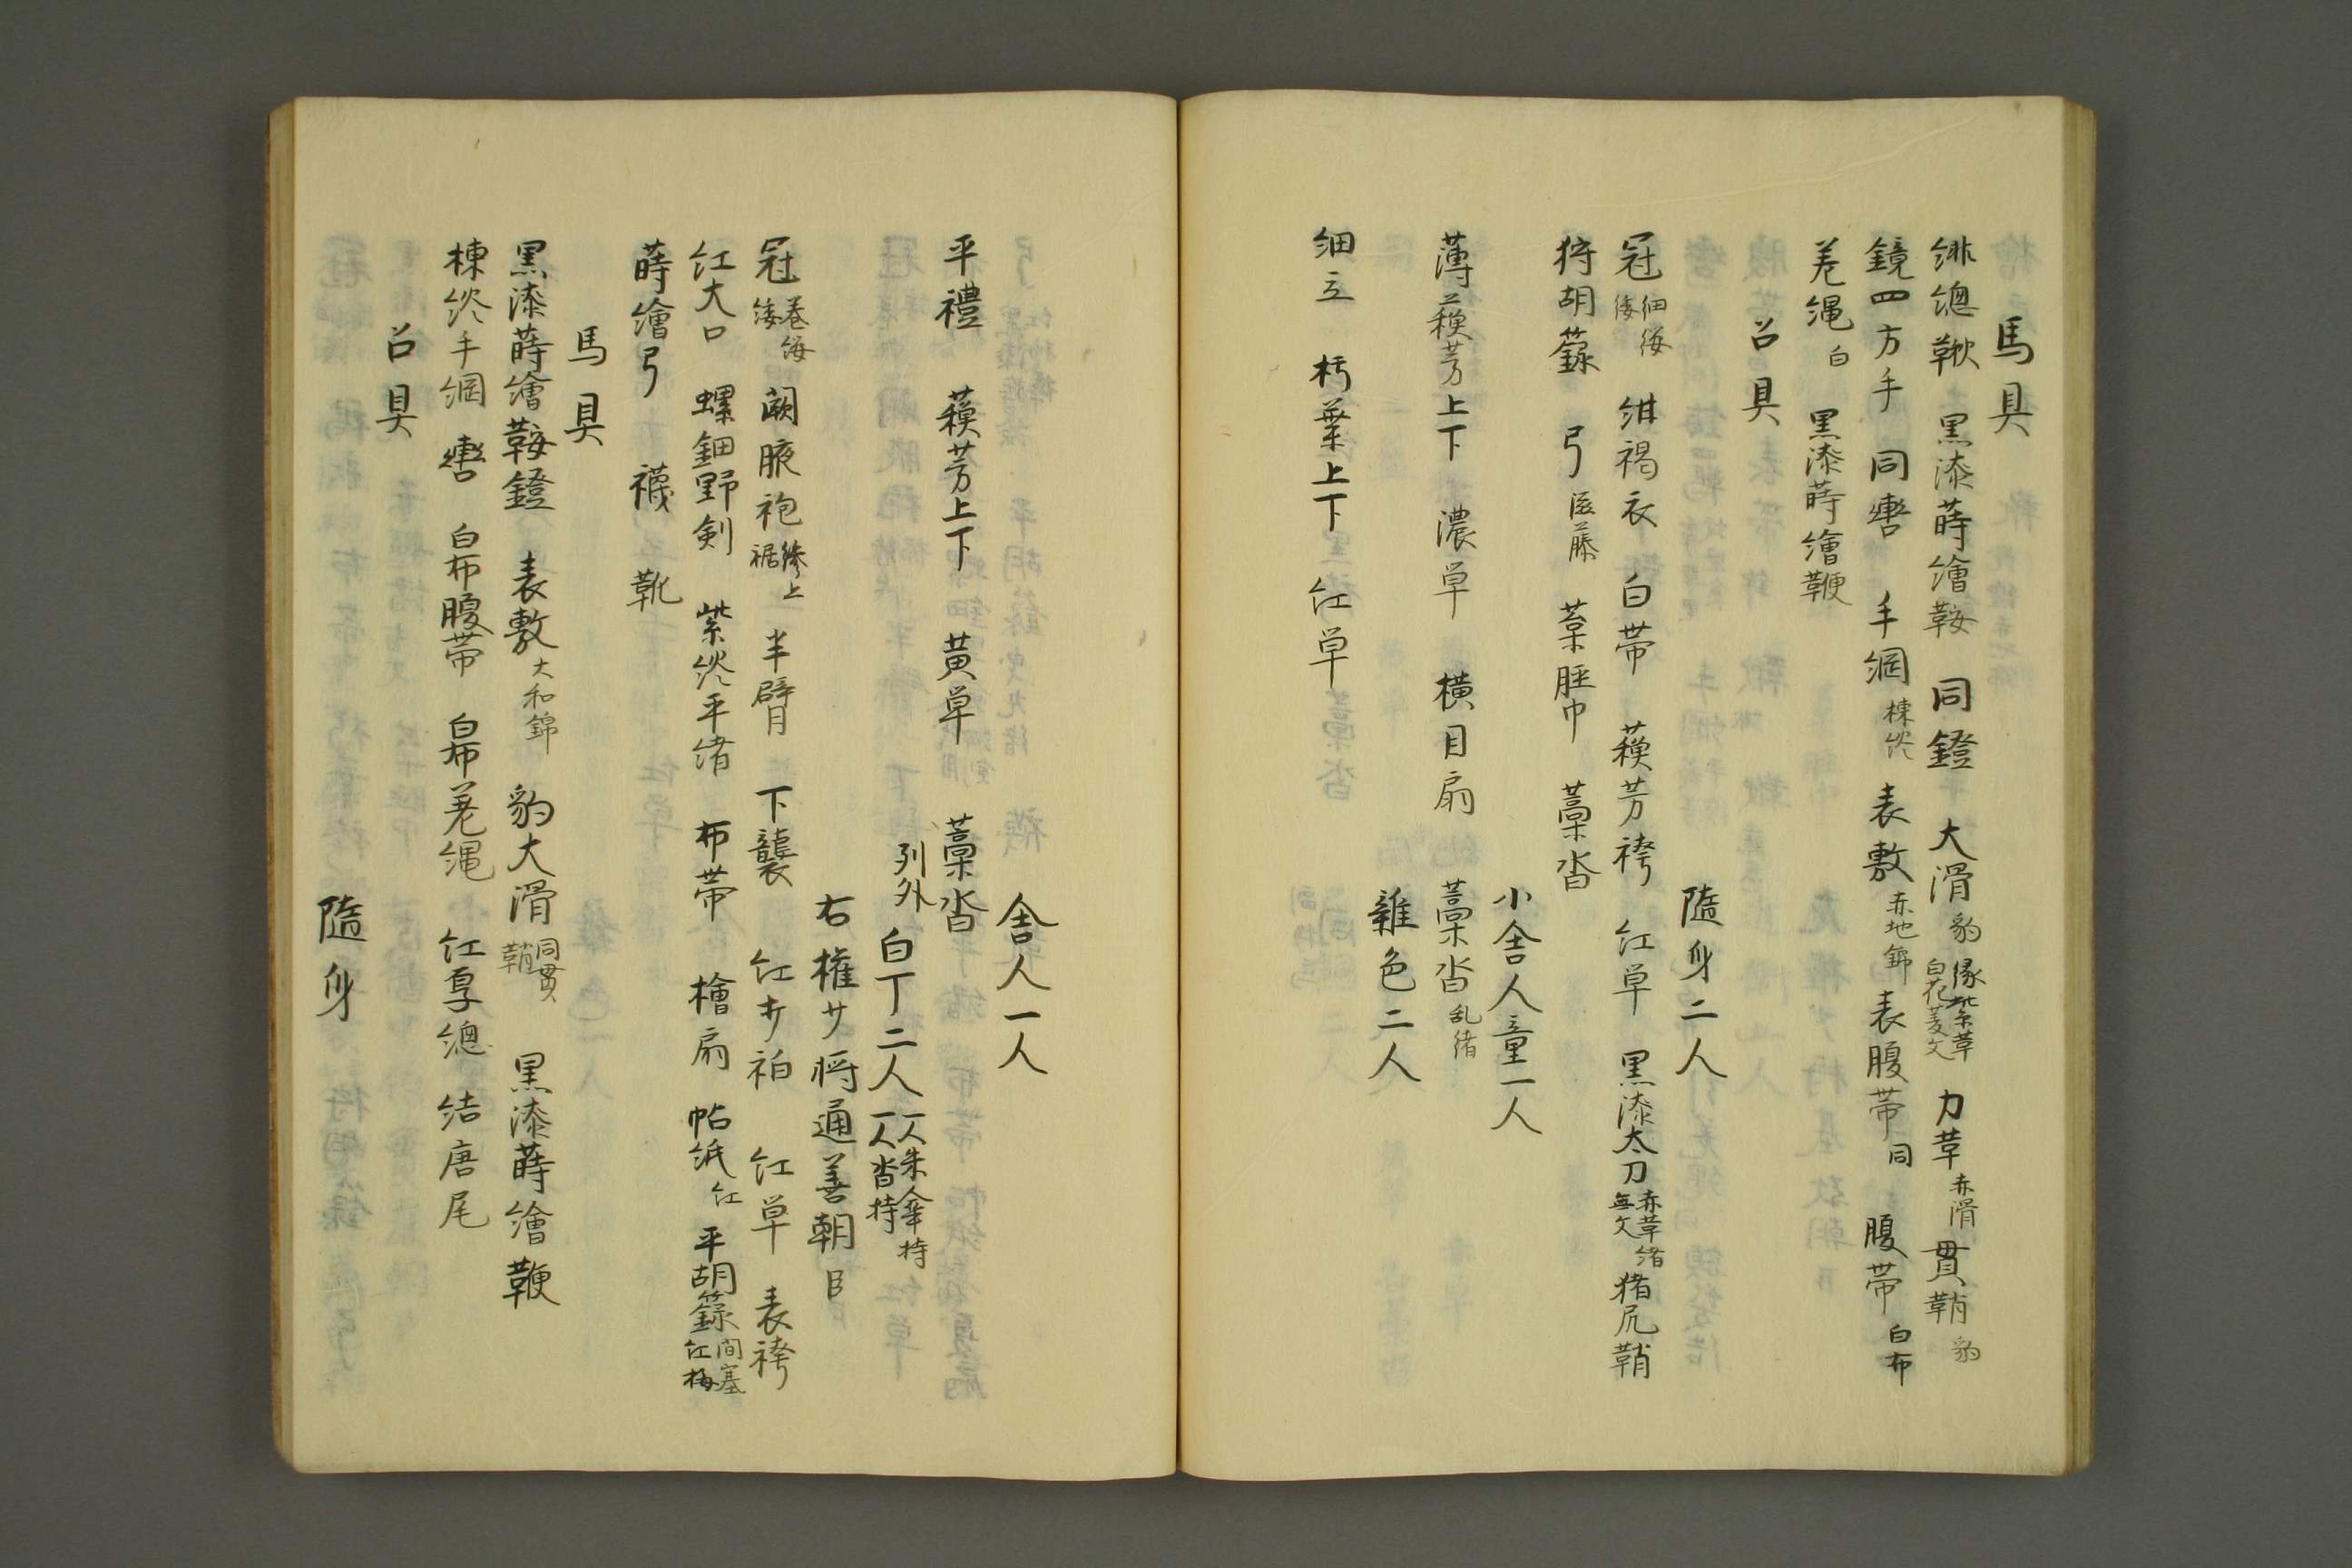 馬具
緋總鞦 黒漆蒔繪鞍 同鐙 大滑 豹 縁紫革 白花菱文 力革 赤滑 貫鞘 豹
鏡四方手 同轡 手綱 楝 表敷 赤地錦 表腹帯 同 腹帯 白布
差縄 白 黒漆蒔繪鞭
召具
隨身二人
冠 細纓 緌 紺褐衣 白帯 蘓芳袴 紅単 黒漆太刀 赤革緒 無文 猪尻鞘
狩胡籙 弓 藤 葈脛巾 藁沓
小舎人童一人
薄蘓芳上下 濃単 横目扇 藁沓 乱緒
雜色二人
細立 朽葉上下 紅単
舎人一人
平禮 蘓芳上下 黄単 藁沓
列外 白丁二人 一人朱傘持 一人沓持
右権少将通善朝臣
冠 巻纓 緌 闕腋袍 纔上 裾 半臂 下襲 紅袙 紅単 表袴
紅大口 螺鈿野剣 紫淡平緒 布帯 檜扇 帖紙 紅 平胡籙 間塞 紅梅
蒔繪弓 襪 靴
馬具
黒漆蒔繪鞍鐙 表敷 大和錦 豹大滑 同貫鞘 黒漆蒔繪鞭
楝淡手綱 轡 白布腹帯 白布差縄 紅厚總 結唐尾
召具
隨身